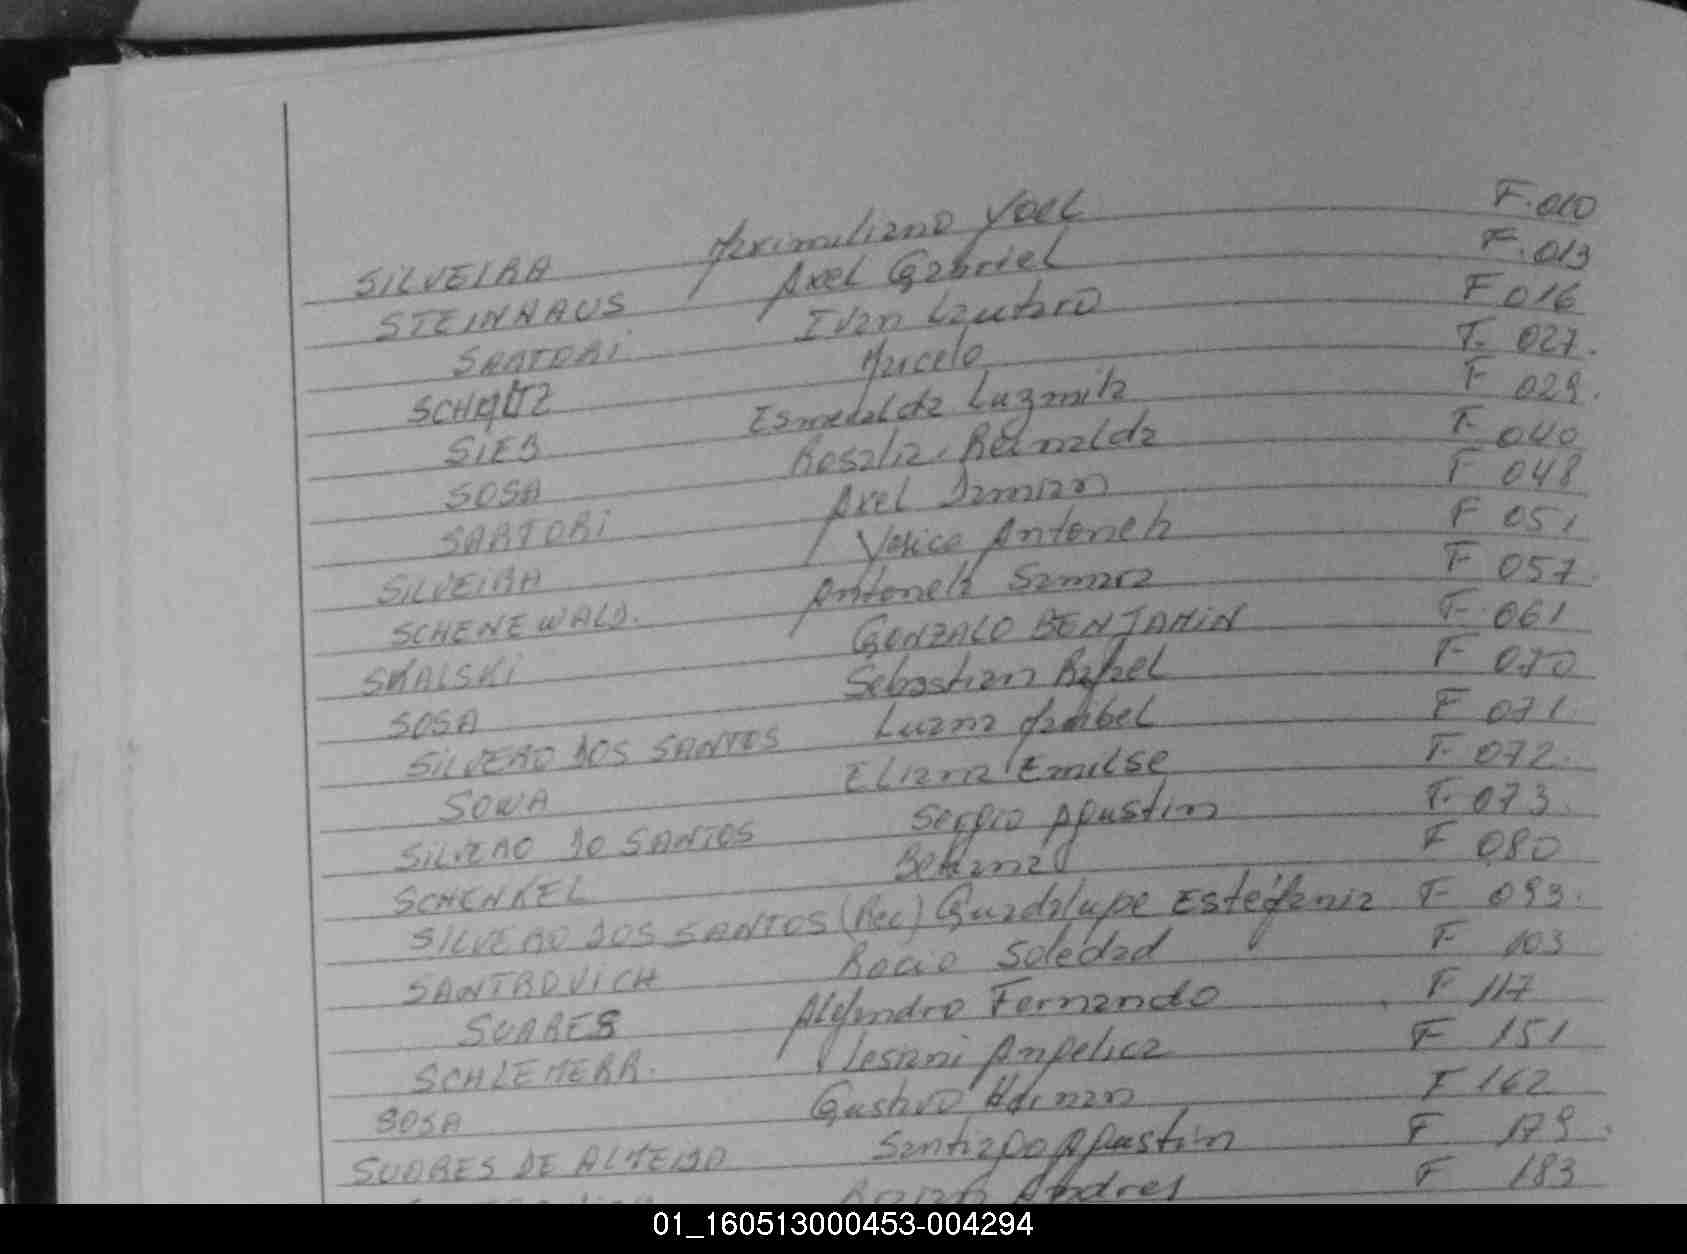 SILVEIRA Maximiliano Yoel F. 010
STEINHAUS Axel Gabriel F. 013
SARTORI Ivan Lautaro F 016
SCHMUTZ Marcelo F. 027.
SIEB Esmeralda Luzmila F 029.
SOSA Rosalia Reinalda F. 040
SARTORI Axel Damian F 048
SILVEIRA Yesica Antonela F 051
SCHENEWALD. Antonela Samara F 057
SKALSKI GONZALO BENJAMIN F. 061
SOSA Sebastian Rafael F 070
SILVERO DOS SANTOS Luana Maibel F 071
SOWA Eliana Emilse F. 072.
SILVERO DO SANTOS Sergio Agustin F. 073.
SCHENKEL Betania F 080
SILVERO DOS SANTOS (Rec) Guadalupe Estefania F 093.
SANTROVICH Rocio Soledad F 103
SUARES Alejandro Fernando F 117
SCHLEMERR. Angelica F 151
SOSA Gustavo Hernan F 162
SUARES DE ALMEIDA Santiago Agustin F 179.
Andres F 183
01_160513000453-004294